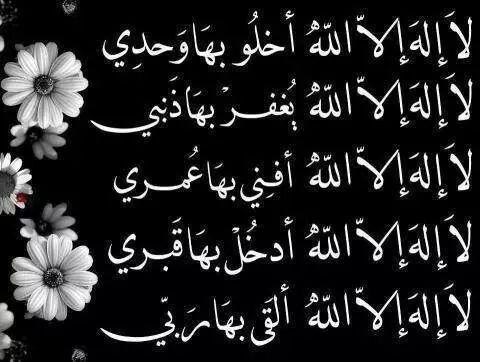 لاَ إلهَ إلاّ اللّهُ أخلُو بهَا وَحدِي
لاَ إلهَ إلاّ اللّهُ يُغفرْ بهَا ذَنبي
لاَ إلهَ إلاّ اللّهُ أفنِي بهَا عُمري
لاَ إلهَ إلاّ اللّهُ أدخُلْ بهَا قَبري
لاَ إلهَ إلاّ اللّهُ ألقَى بهَا رَبّي